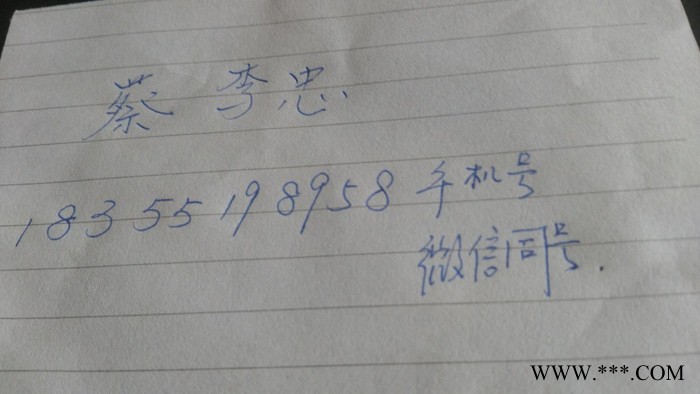 蔡 李忠
18355198958 手机号
微信同号.
WWW.***.COM